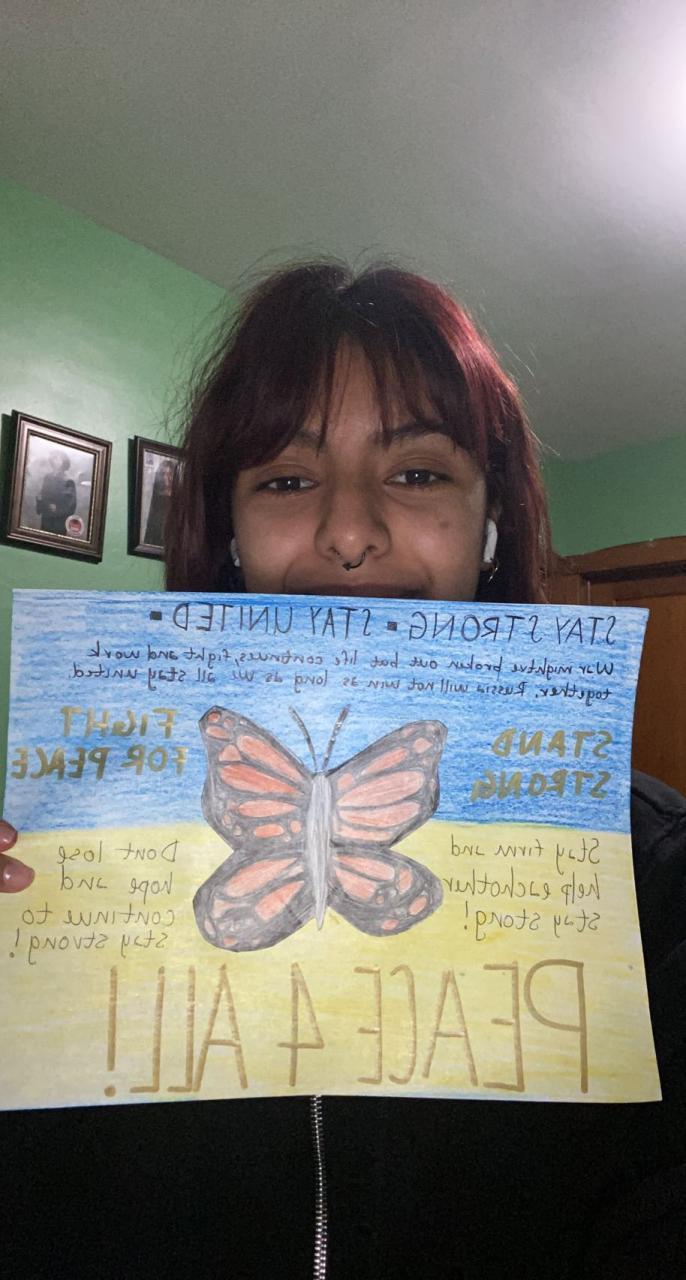 STAY STRONG ▪ STAY UNITED ▪
War might've broken out but life continues, fight and work
together. Russia will not win as long as we all stay united.
STAND
STRONG
FIGHT
FOR PEACE
Stay firm and
help eachother
stay stong!
Dont lose
hope and
continue to
stay strong!
PEACE 4 ALL!